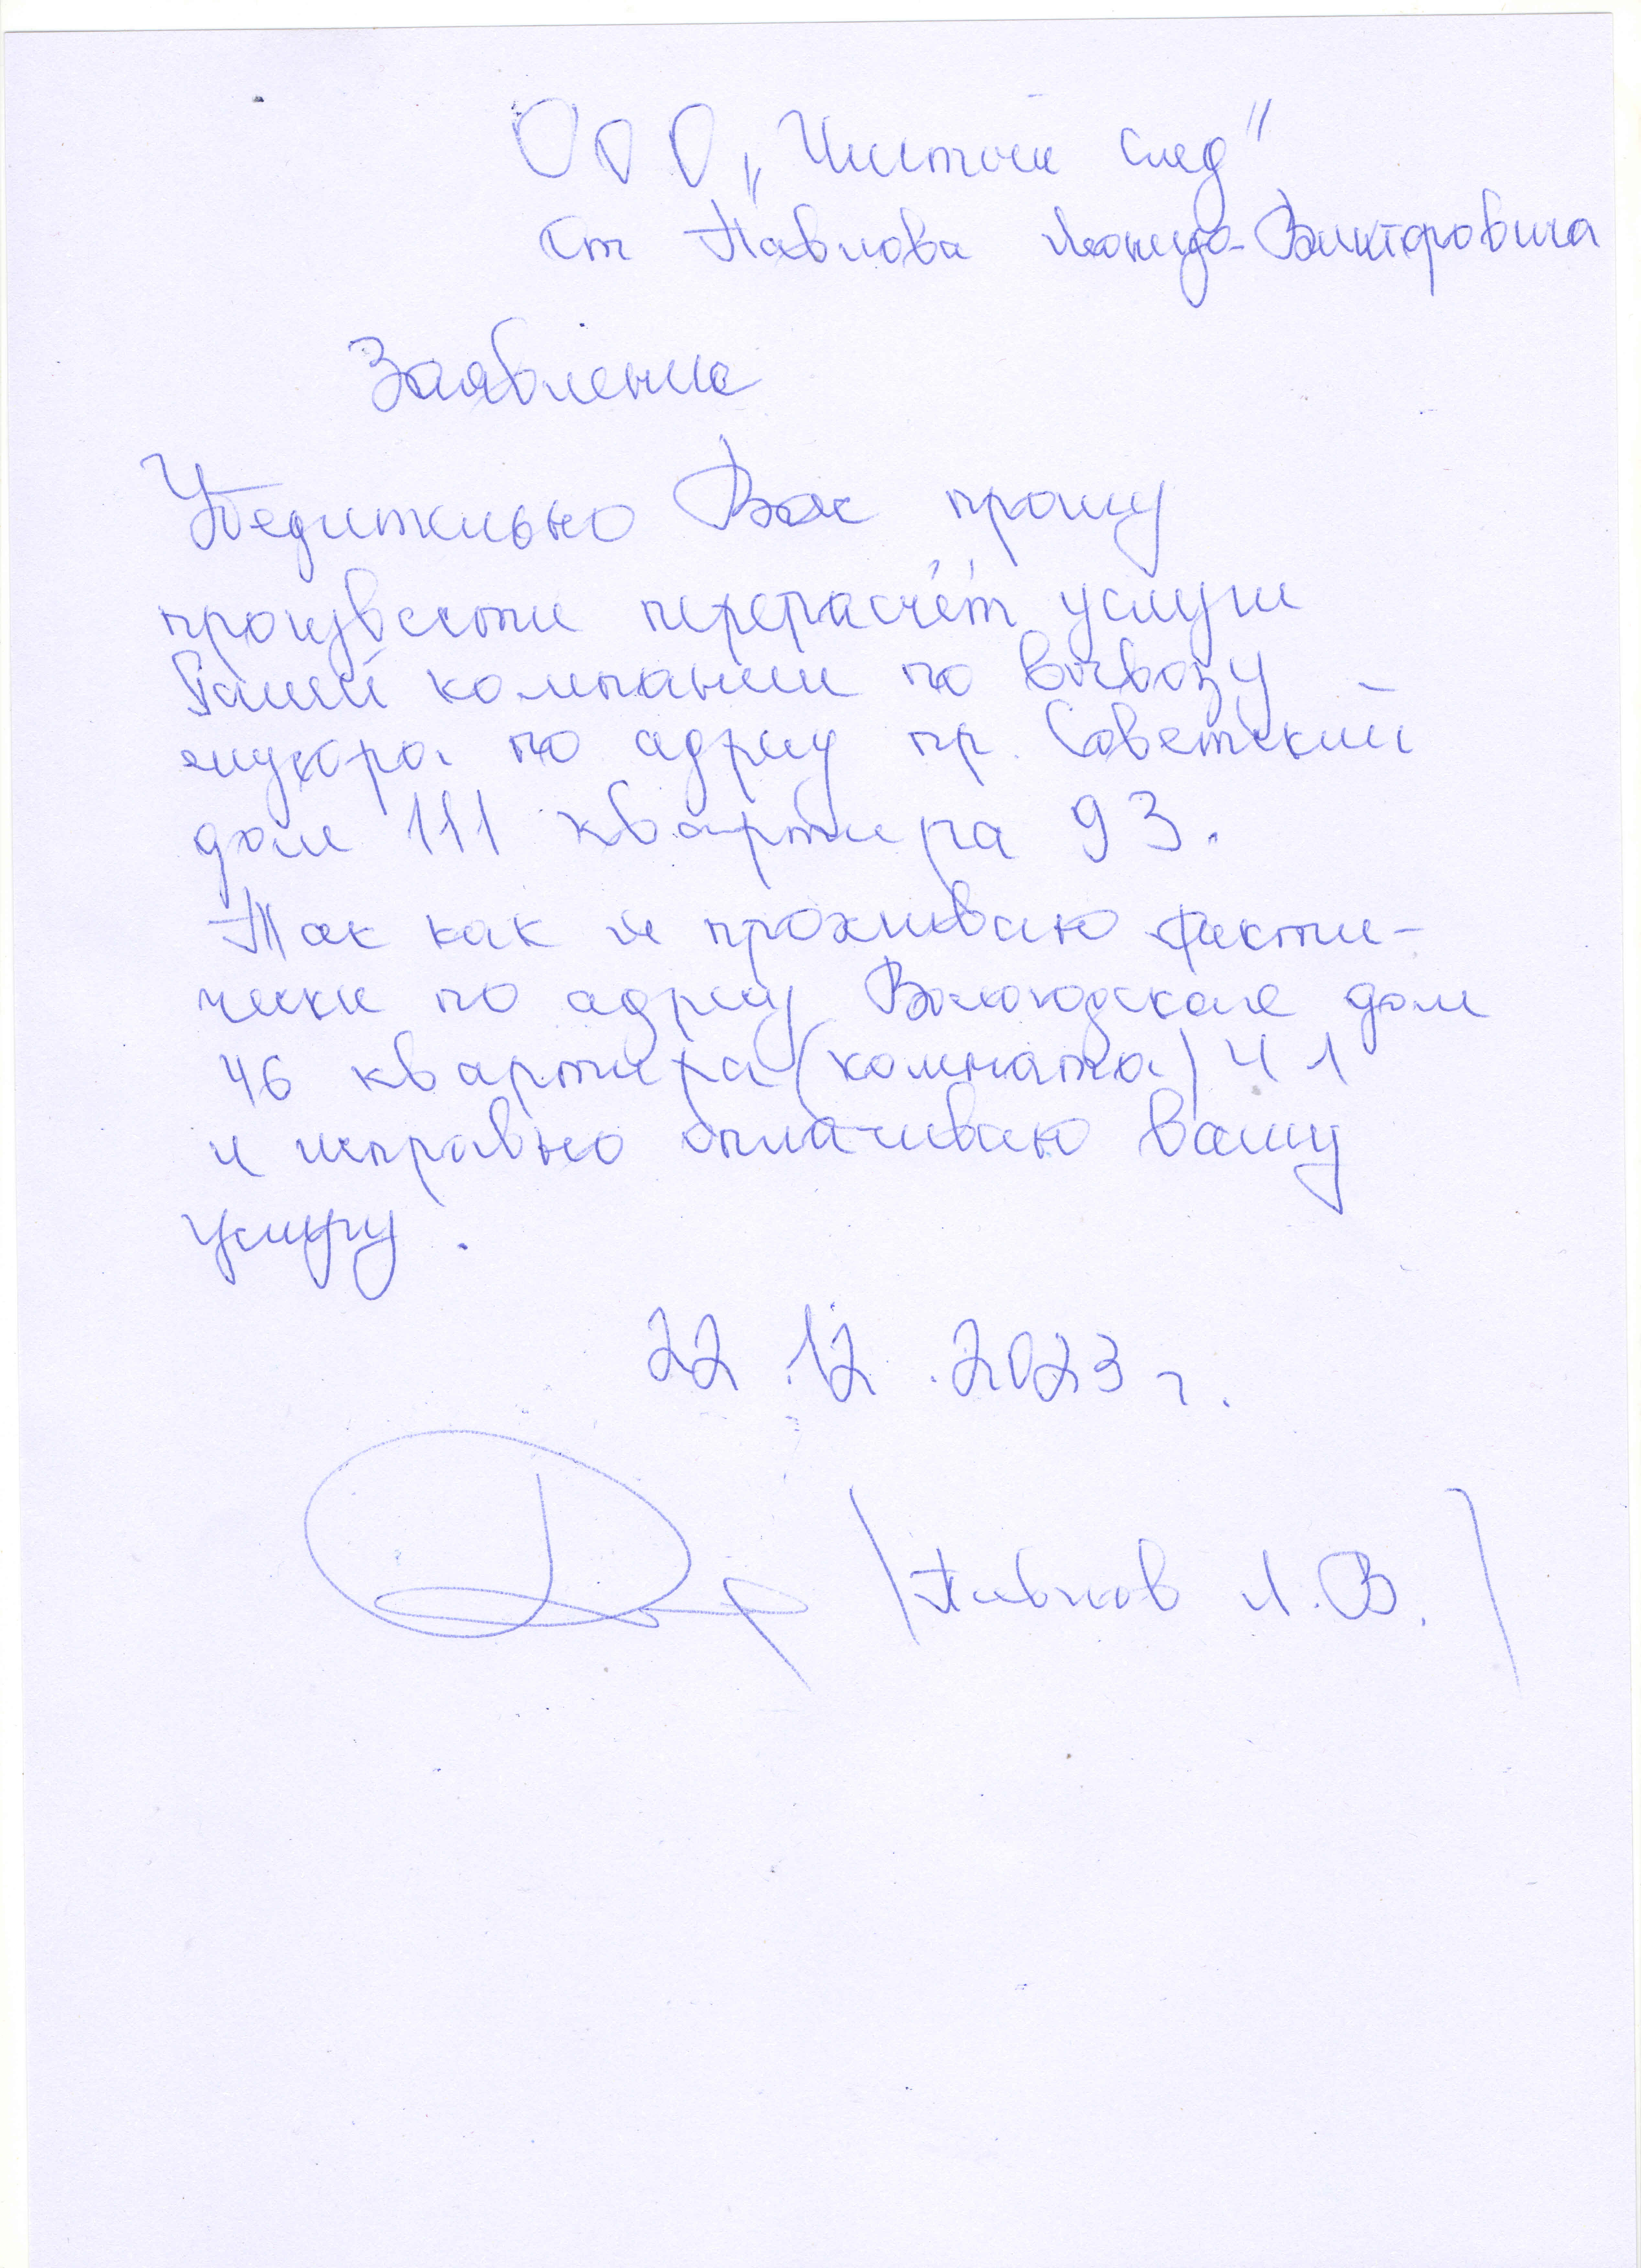 ООО „Чистый след"
От Павлова Леонида Викторовича
Заявление
Убедительно Вас прошу
произвести перерасчёт услуги
Вашей компании по вывозу
мусора. по адресу пр. Советский
дом 111 квартира 93.
Так как я проживаю факти-
чески по адресу Вологодская дом
46 квартира (комната) 41
и исправно оплачиваю вашу
услугу.
22.12.2023 г.
/Павлов Л.В./